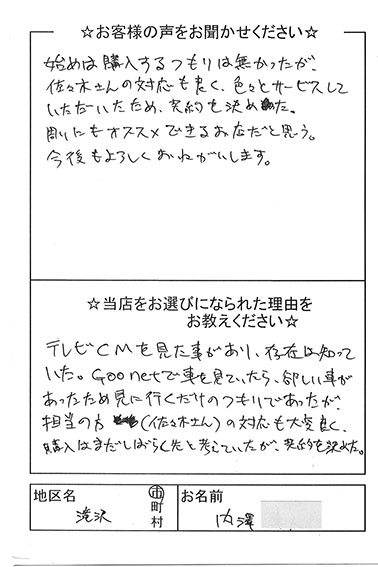 ☆お客様の声をお聞かせください☆
始めは購入するつもりは無かったが、
佐々木さんの対応も良く、色々とサービスして
いただいたため、契約を決めた。
周りにもオススメできるお店だと思う。
今後もよろしくおねがいします。
☆当店をお選びになられた理由を
お教えください☆
テレビCMを見た事があり、存在は知って
いた。Goo netで車を見ていたら、欲しい車が
あったため見に行くだけのつもりであったが、
担当の方(佐々木さん)の対応も大変良く、
購入はまだしばらく先と考えていたが、契約を決めた。
地区名
滝沢
市
町
村
お名前
内澤